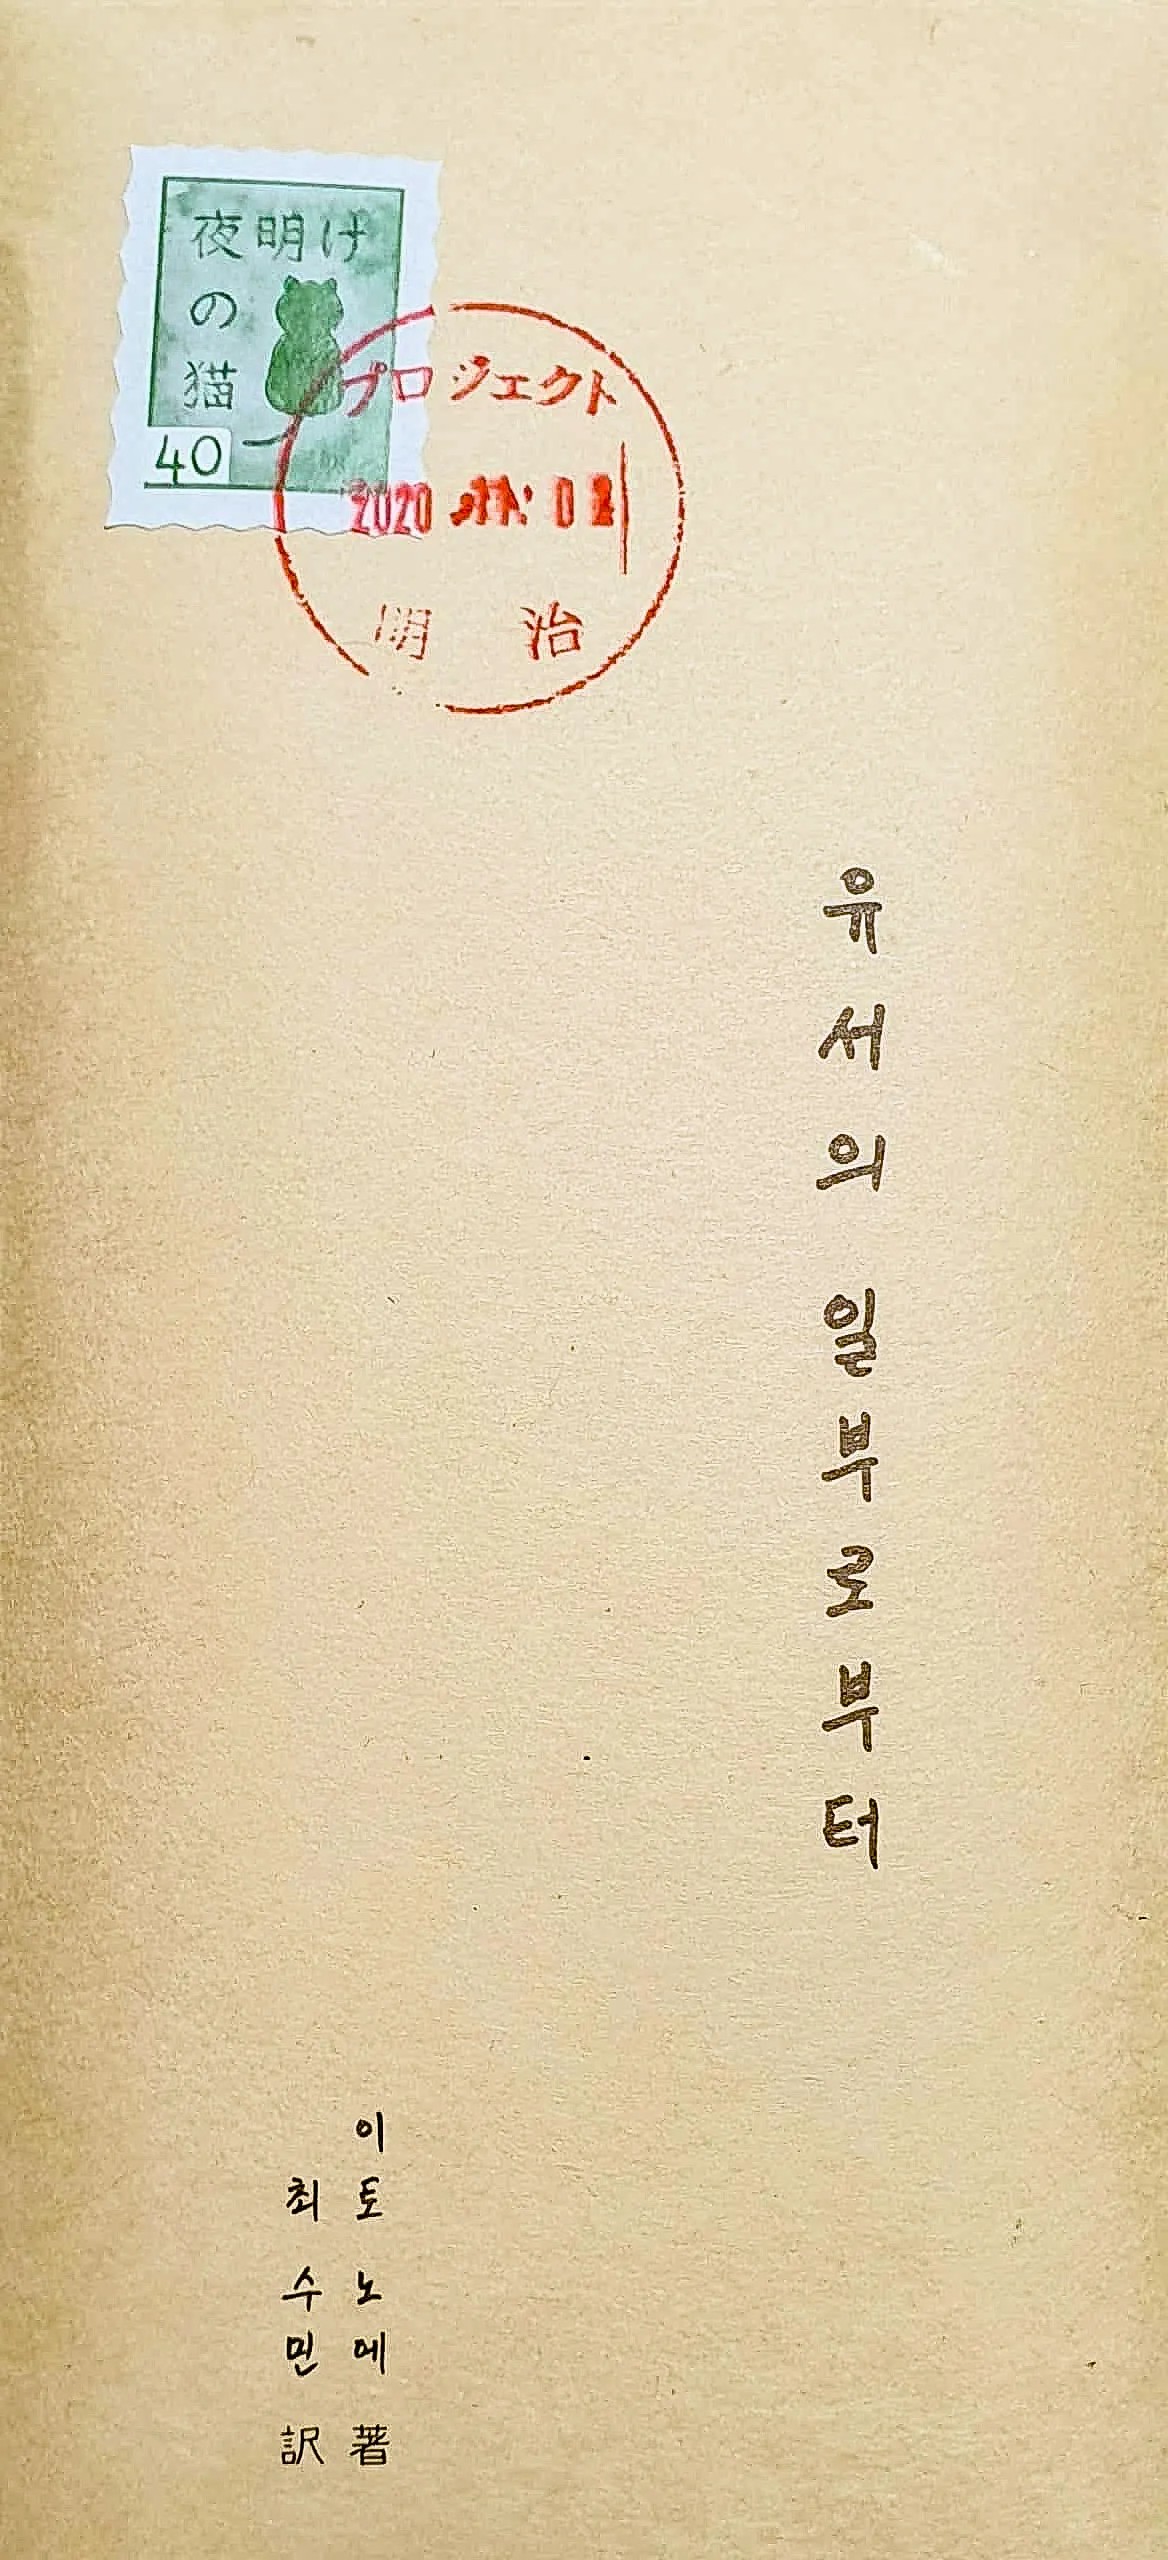 夜明け
の
猫
40
プロジェクト
2020
明 治
유서의 일부로부터
이토 노에 著
최 수민 訳